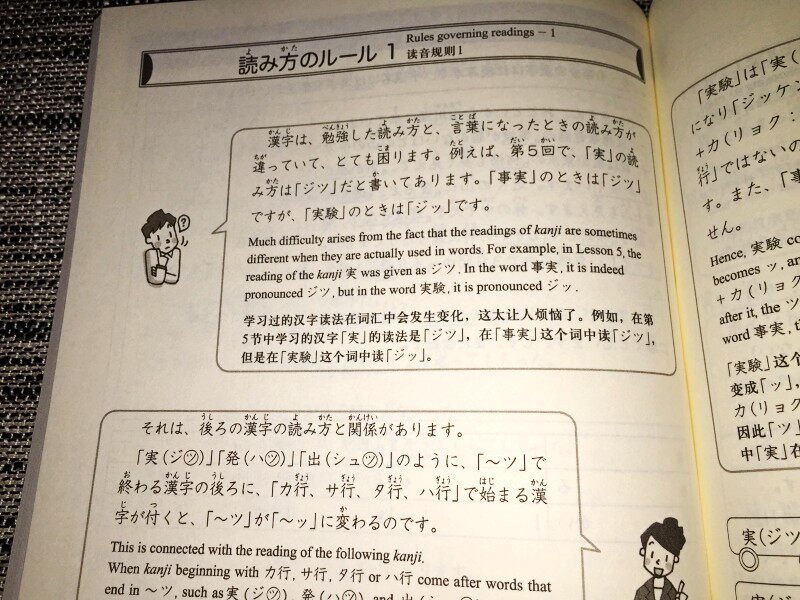 読み方のルール 1
Rules governing readings – 1
读音规则1
漢字は、勉強した読み方と、言葉になったときの読み方が
違っていて、とても困ります。例えば、第5回で、「実」の読
み方は「ジツ」だと書いてあります。「事実」のときは「ジツ」
ですが、「実験」のときは「ジッ」です。
Much difficulty arises from the fact that the readings of kanji are sometimes
different when they are actually used in words. For example, in Lesson 5, the
reading of the kanji 実 was given as ジツ. In the word 事実, it is indeed
pronounced ジツ, but in the word 実験, it is pronounced ジッ.
学习过的汉字读法在词汇中会发生变化，这太让人烦恼了。例如，在第
5节中学习的汉字「実」的读法是「ジツ」，在「事実」这个词中读「ジツ」，
但是在「実験」这个词中读「ジッ」。
?
それは、後ろの漢字の読み方と関係があります。
「実（ジツ）」「発（ハツ）」「出（シュツ）」のように、「～ツ」で
終わる漢字の後ろに、「カ行、サ行、タ行、ハ行」で始まる漢
字が付くと、「～ツ」が「～ッ」に変わるのです。
This is connected with the reading of the following kanji.
When kanji beginning with カ行, サ行, タ行 or ハ行 come after words that
end in ～ツ, such as 実（ジツ）, 発（ハツ）and 出（シュツ）
「実験」は「実（
になり「ジッケン
＋カ（リョク：
行」ではないの
す。また、「事
せん。
Hence, 実験 co
becomes ッ, an
＋カ（リョク
after it, the ツ
word 事実, t
「実験」这个
变成「ッ」，
カ（リョク
因此「ツ」
中「実」在
実（ジツ